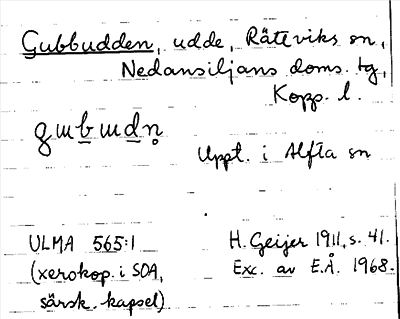 Gubbudden, udde, Rättviks sn,
Nedansiljans doms. tg,
Kopp. l.
gɯbɯdn̥
Uppt. i Alfta sn
ULMA 565:1
(xerokop. i SOA,
särsk. kapsel)
H. Geijer 1911, s. 41.
Exc. av E.Å. 1968.